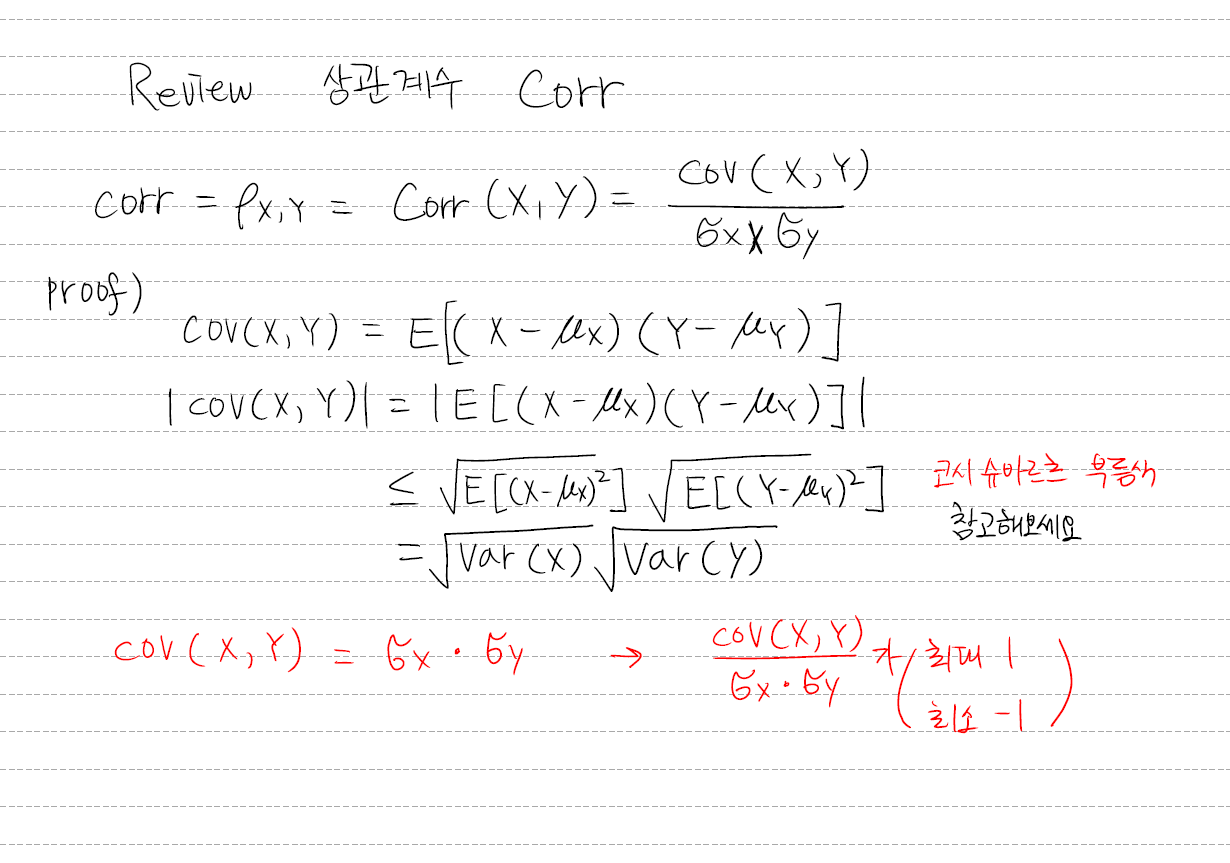 Review 상관계수 Corr
corr = ρX,Y = Corr (X,Y) = cov(X,Y) / σx × σy
proof)
cov(X,Y) = E[(X-μX)(Y-μY)]
|cov(X,Y)| = |E[(X-μX)(Y-μY)]|
≤ √E[(X-μX)²] √E[(Y-μY)²] 코시 슈바르츠 부등식
참고해보세요
= √Var(X) √Var(Y)
cov(X,Y) = σx · σy → cov(X,Y) / σx · σy 가 (최대 1
최소 -1)